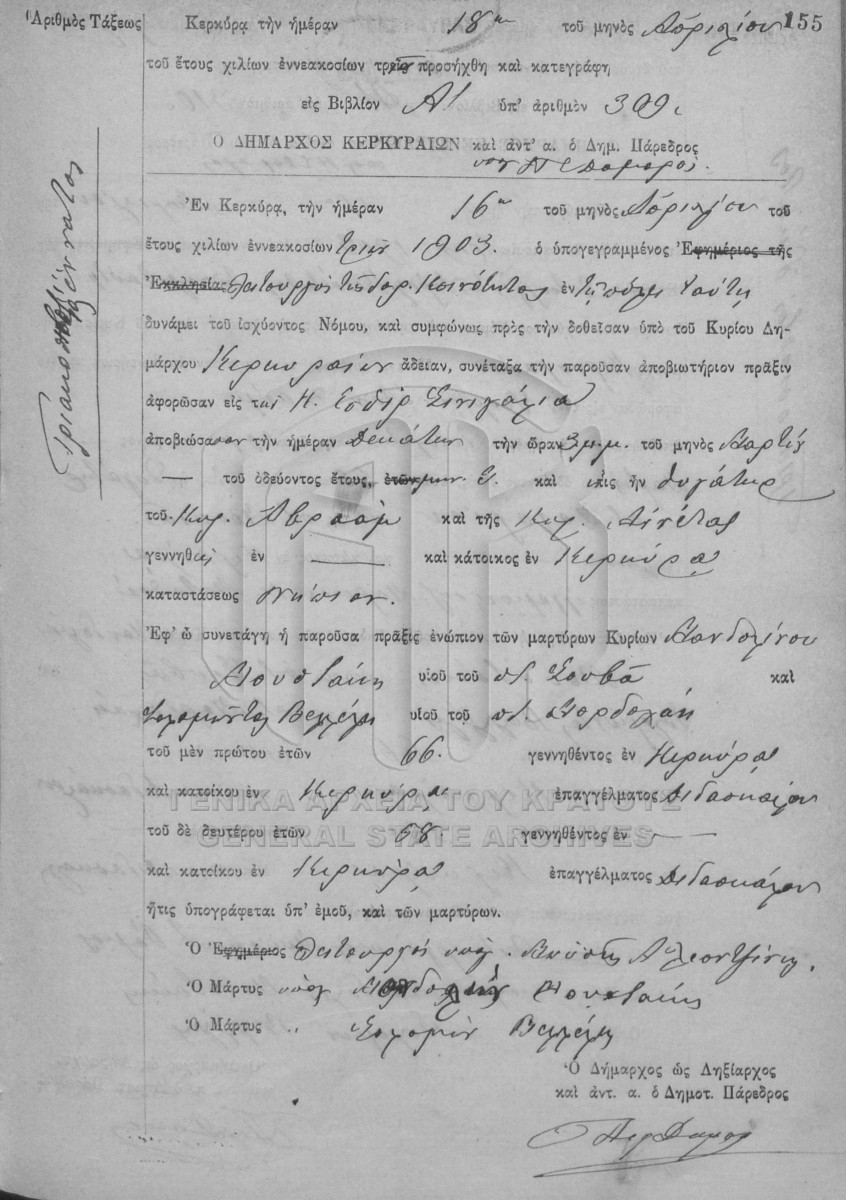 Ἀριθμὸς Τάξεως Κερκύρᾳ τὴν ἡμέραν 18ην τοῦ μηνὸς Ἀπριλίου 155
τοῦ ἔτους χιλίων ἐννεακοσίων τρία προσήχθη καὶ κατεγράφη
εἰς Βιβλίον Α! ὑπ' ἀριθμὸν 309.
Ὁ ΔΗΜΑΡΧΟΣ ΚΕΡΚΥΡΑΙΩΝ καὶ ἀντ' α. ὁ Δημ. Πάρεδρος
Ἐν Κερκύρᾳ, τὴν ἡμέραν 16ην τοῦ μηνὸς Ἀπριλίου τοῦ
ἔτους χιλίων ἐννεακοσίων τριῶν 1903. ὁ ὑπογεγραμμένος Ἐφημέριος τῆς
Ἐκκλησίας Λειτουργὸς τῆς Ἰσρ. Κοινότητος ἐν τῇ πόλει ταύτῃ
δυνάμει τοῦ ἰσχύοντος Νόμου, καὶ συμφώνως πρὸς τὴν δοθεῖσαν ὑπὸ τοῦ Κυρίου Δη-
μάρχου Κερκυραίων ἄδειαν, συνέταξα τὴν παροῦσαν ἀποβιωτήριον πρᾶξιν
ἀφορῶσαν εἰς τὴν Η. Ἐσθὴρ Σινιγάλια
ἀποβιώσασαν τὴν ἡμέραν Δεκάτην τὴν ὥραν 3 μ.μ. τοῦ μηνὸς Μαρτίου
— τοῦ ὁδεύοντος ἔτους, ἐτῶν μην. καὶ ἥτις ἦν θυγάτηρ
τοῦ Κυρ. Ἀβραὰμ καὶ τῆς Κυρ. Ἀννέτας
γεννηθεῖσ ἐν — καὶ κάτοικος ἐν Κερκύρᾳ
καταστάσεως νήπιον.
Ἐφ' ᾧ συνετάγη ἡ παροῦσα πρᾶξις ἐνώπιον τῶν μαρτύρων Κυρίων Μανδολίνου
Μουστάκη υἱοῦ τοῦ π. καὶ
Σολομῶντος Βελλέλη υἱοῦ τοῦ π. Μορδοχάη
τοῦ μὲν πρώτου ἐτῶν 66. γεννηθέντος ἐν Κερκύρᾳ
καὶ κατοίκου ἐν Κερκύρᾳ ἐπαγγέλματος Διδασκάλου
ΓΕΝΙΚΑ ΑΡΧΕΙΑ ΤΟΥ ΚΡΑΤΟΥΣ
τοῦ δὲ δευτέρου ἐτῶν 68 γεννηθέντος ἐν —
GENERAL STATE ARCHIVES
καὶ κατοίκου ἐν Κερκύρᾳ ἐπαγγέλματος Διδασκάλου
ἥτις ὑπογράφεται ὑπ' ἐμοῦ, καὶ τῶν μαρτύρων.
Ὁ Ἐφημέριος Λειτουργὸς
Ὁ Μάρτυς Μουστάκης
Ὁ Μάρτυς „ Σολομὼν Βελλέλη
Ὁ Δήμαρχος ὡς Ληξίαρχος
καὶ ἀντ. α. ὁ Δημοτ. Πάρεδρος